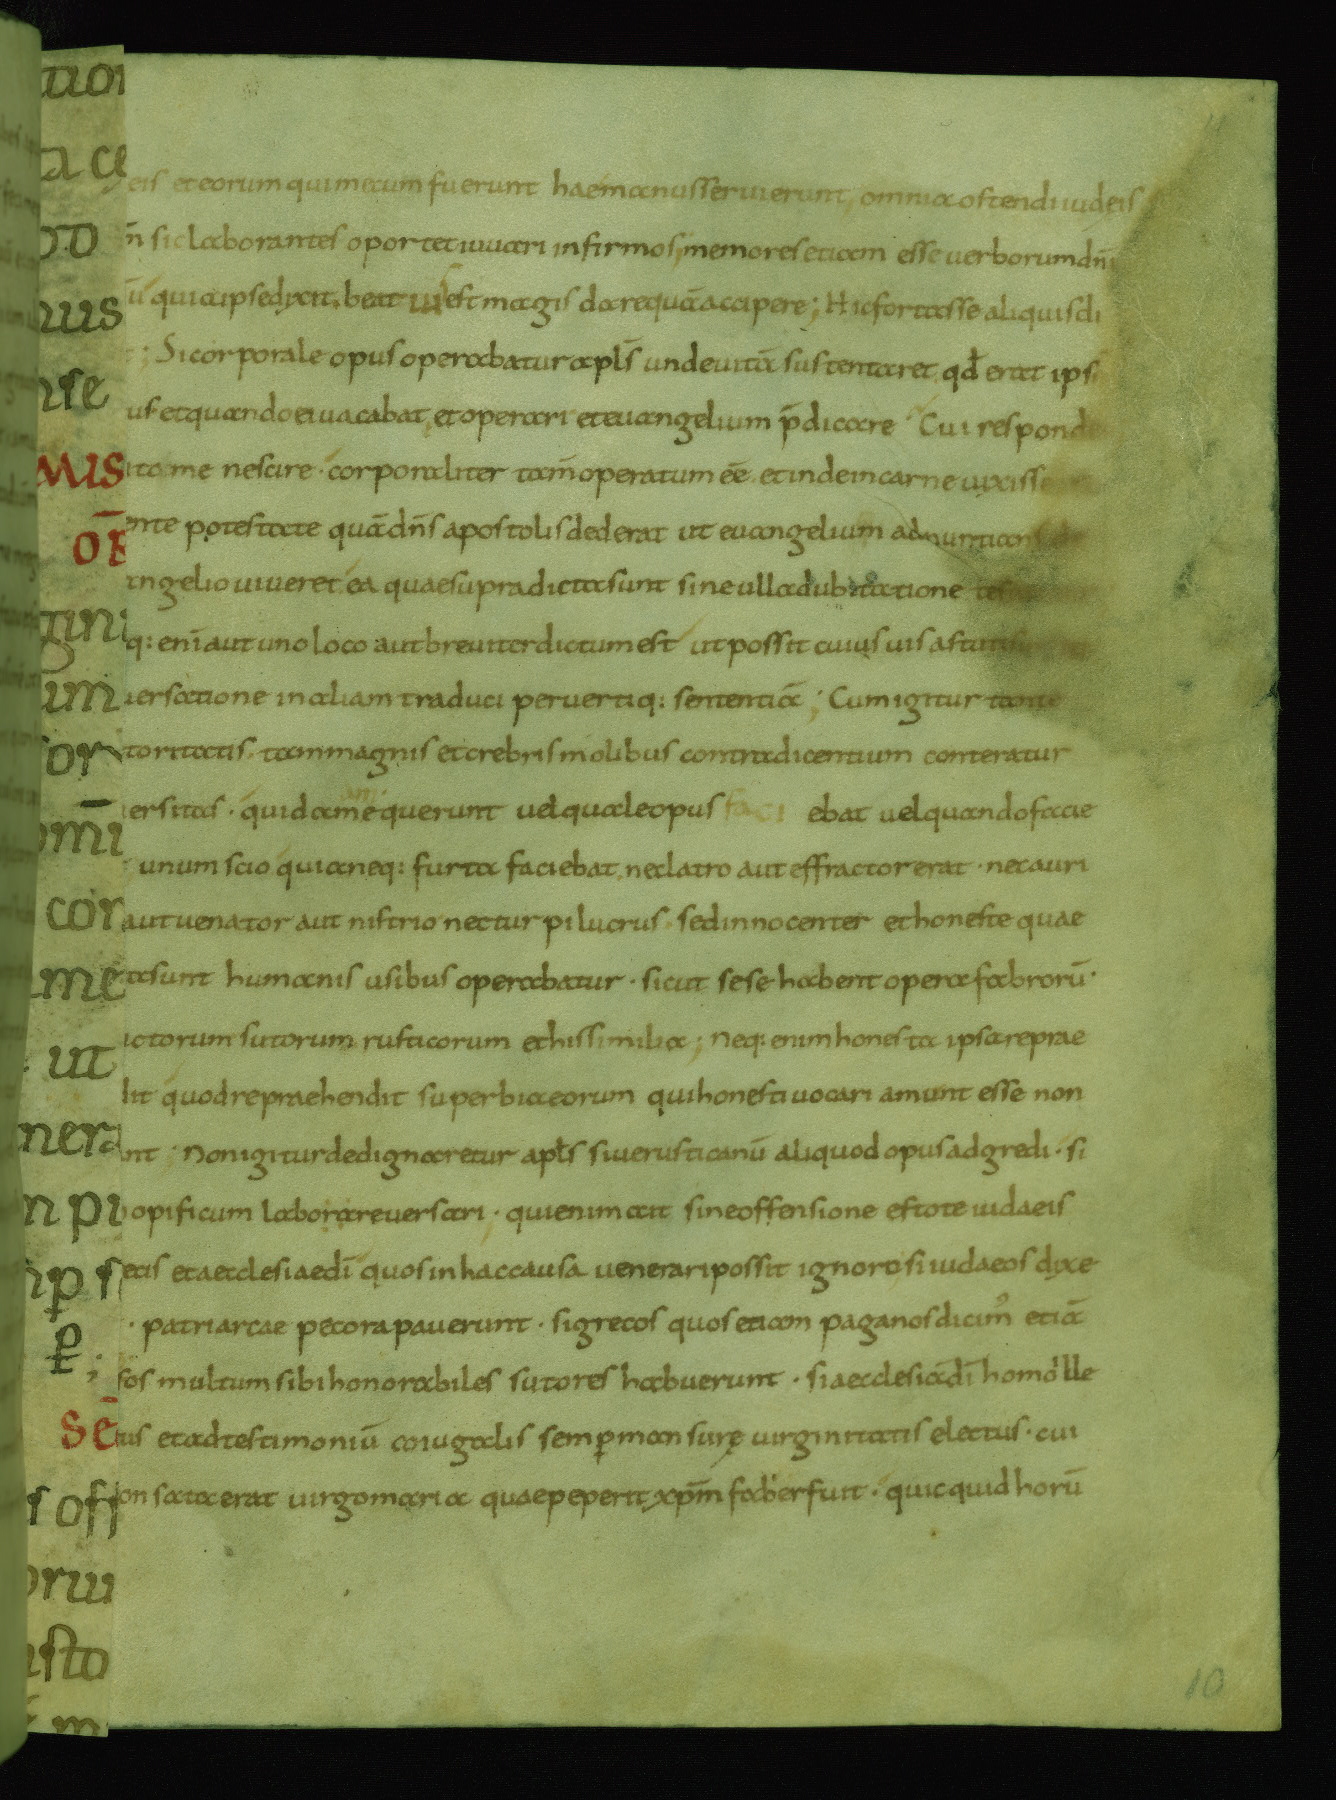 eis et eorum qui mecum fuerunt hae manus servierunt, omnia ostendi iudeis
n̄ sic laborantes oportet iuuari infirmos, memores etiam esse uerborum dn̄i
ū quia ipse dyxit. beatius est magis dare quā accipere; Hic fortasse aliquis di
; Si corporale opus operabatur apls̄ unde uitā sustentaret qđ erat ips
us et quando ei uacabat, et operari et euangelium p̄dicare Cui responde
ita me nescire · corporaliter tam̄ operatum eē et inde in carne uixisse
ente potestate quā dn̄s apostolis dederat ut euangelium adnuntians
angelio uiueret ea quae supra dicta sunt sine ulla dubitatione
q: eni aut uno loco aut breuiter dictum est ut possit cuius uis
uersatione in aliam traduci peruertiq: sententiā; Cum igitur tante
toritatis tam magnis et crebris molibus contradicentium conteratur
uersitas · quid a me querunt uel quale opus faci ebat uel quando facie
unum scio quia neq: furta faciebat, nec latro aut effractor erat · nec auri
aut uenator aut nistrio nec turpi lucrus · sed innocenter et honeste quae
ta sunt humanis usibus operabatur · sicut sese habent opera fabrorū ·
ictorum sutorum rusticorum et his similia; Neq: enim honesta ipsa reprae
dit quod repraehendit superbia eorum qui honesti uocari amant esse non
nt; Non igitur dedignaretur apls̄ siue rusticanū aliquod opus adgredi · si
opificum labore uersari · qui enim ait sine offensione estote iudaeis
ecis et aecclesiae dī quos in hac causa uenerari possit ignoro, si iudaeos dyxe
· patriarcae pecora pauerunt · si grecos quos etiam paganos dicim᾽ etiā
sos multum sibi honorabiles sutores habuerunt · si aecclesiā dī homo ille
tus et ad testimoniū coiugalis semp mansurę uirginitatis electus · cui
onsata erat uirgo maria quae peperit xpm̄ faber fuit · quicquid horū
10
tior
a ce
OD
nus
nse
MIS
OR
gini
um
sor
omi
cor
me
ut
nera
n pi
np s
p;
SE
s off
orum
isto
m